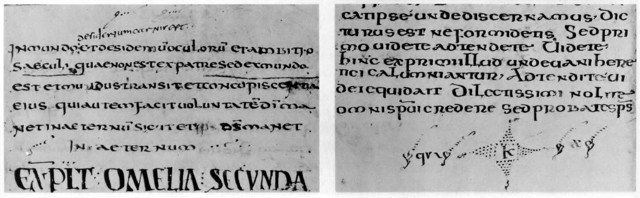 desideriumcarnisest
inmundo; etdesideriūoculorūetambitio
saeculi, quaenonestexpatresedexmundo
estetmundustransitetconcupiscentia
eius quiautemfacituoluntatēdīma
netinaeternū dsmanet
in aeternum
EXPLT OMELIA SECUNDA
catipse undediscernamus, dic
turusest neformidetis, sedpri
mo uidete adtendete uidete
hinc exprimi illud undeuanihere
tici calumniantur, adtendite ui
quidait dilectissimi
omnispui credere sedprobatesps
K